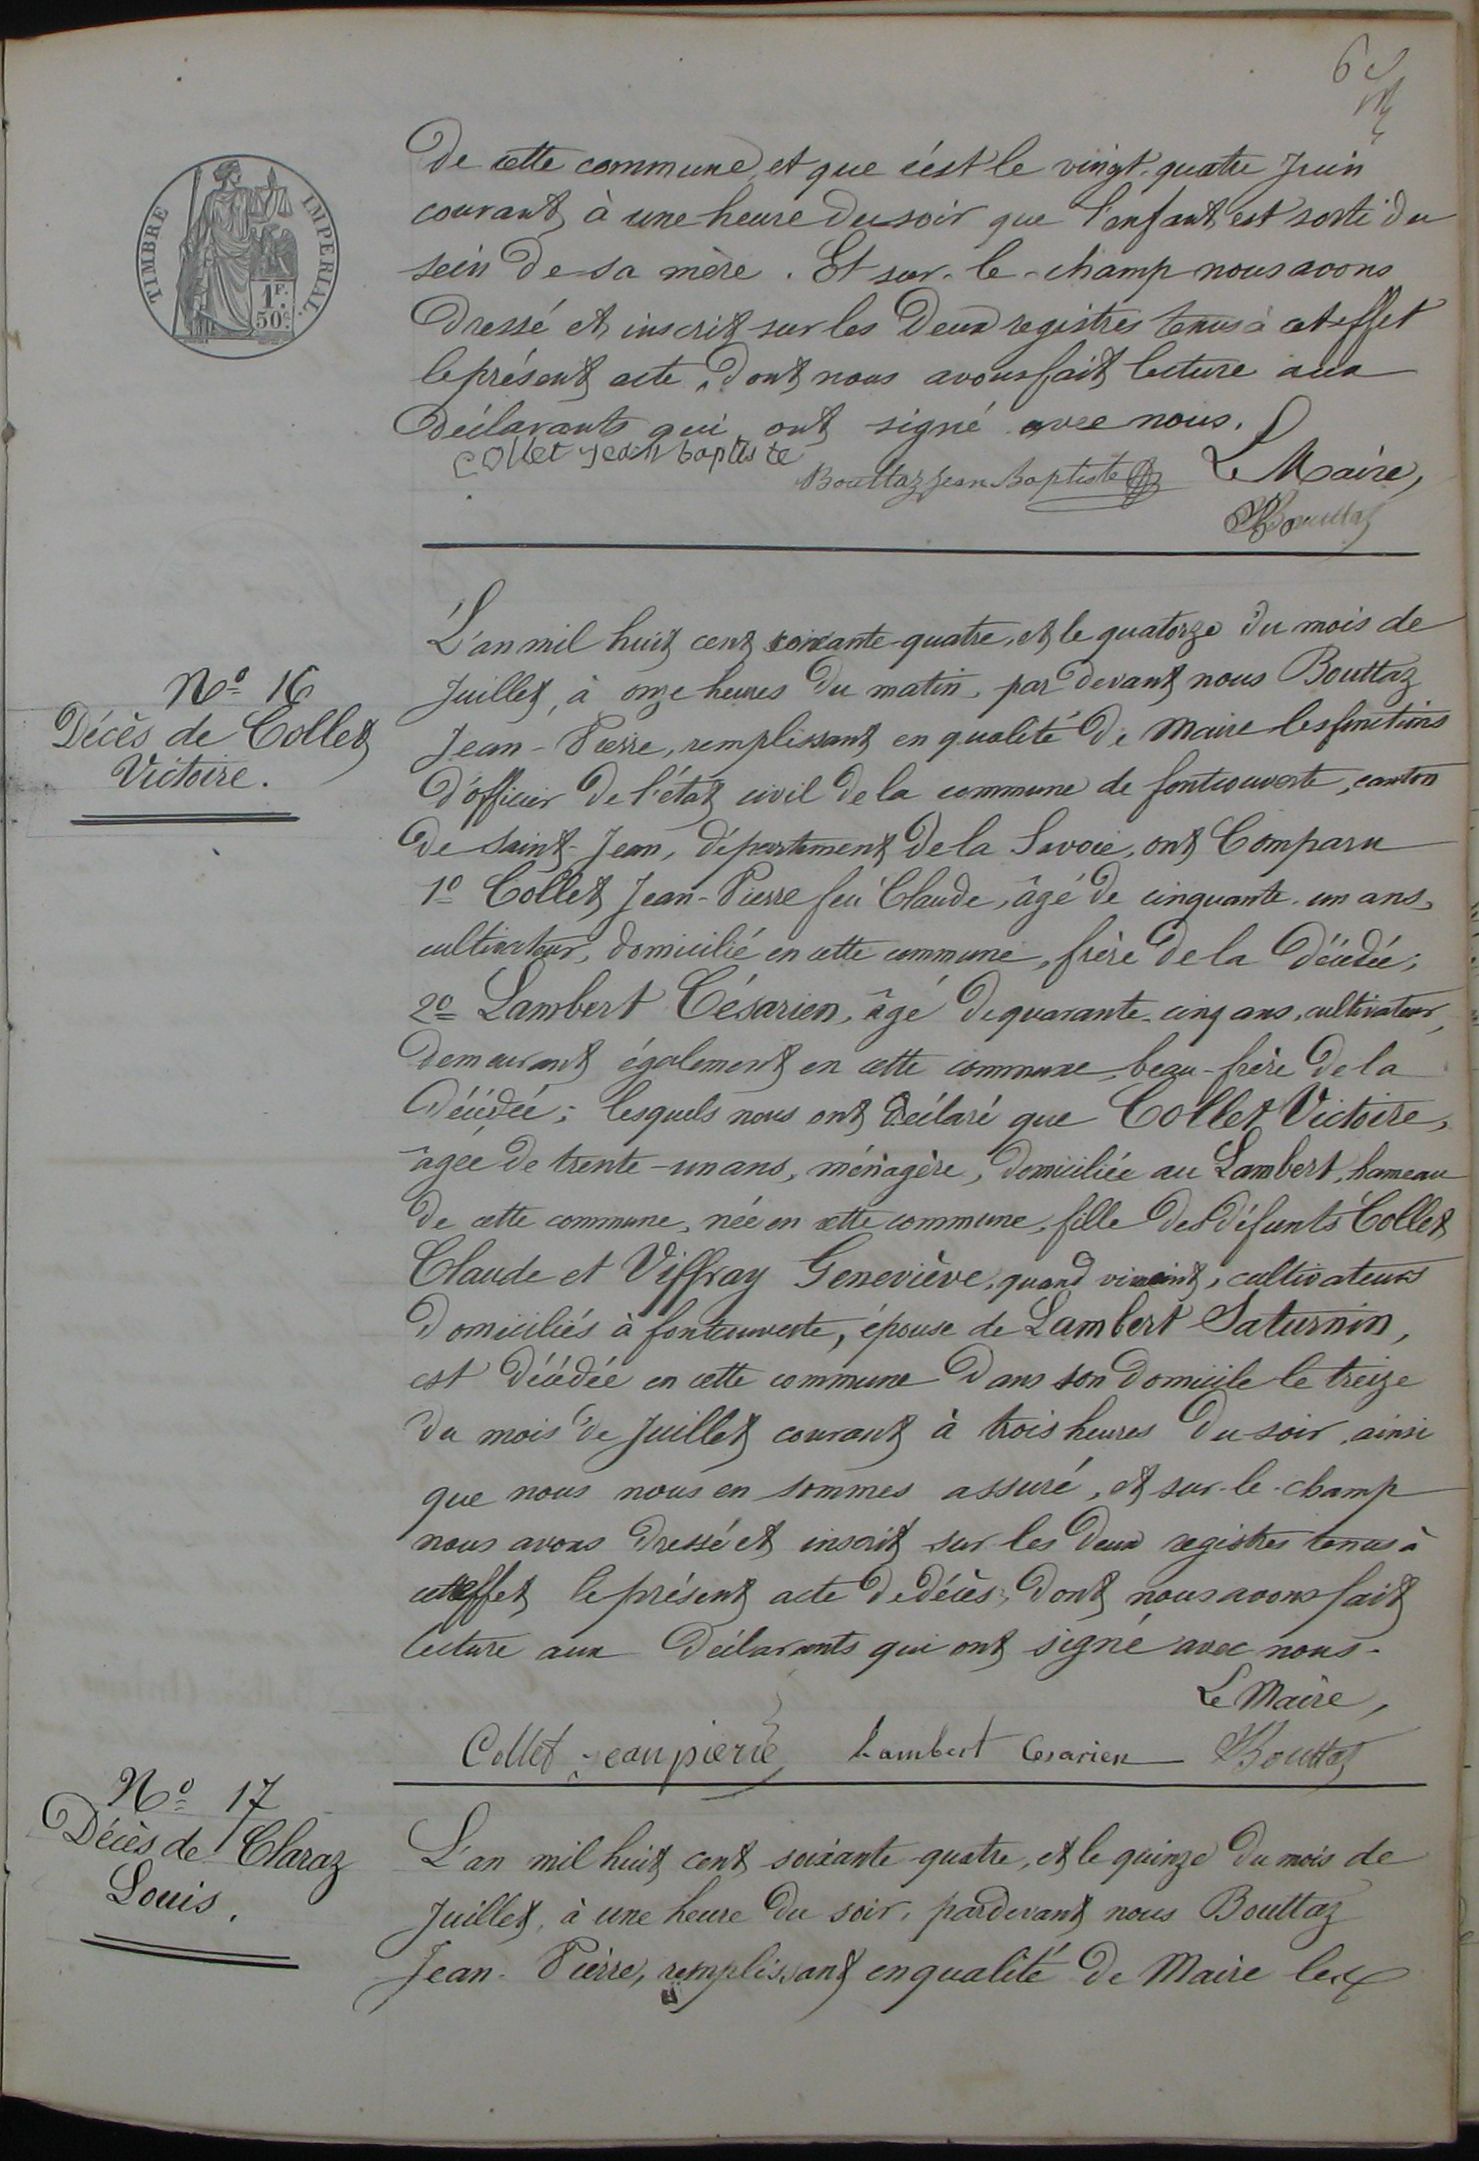 6
TIMBRE IMPERIAL
1F.
50c.
De cette commune, et que c'est le vingt-quatre Juin
courant, à une heure du soir que l'enfant est sorti du
sein de sa mère. Et sur-le-champ nous avons
dressé et inscrit sur les deux registres tenus à cet effet
le présent acte, dont nous avons fait lecture aux
déclarants qui ont signé avec nous.
Collet jean baptiste
Bouttaz Jean Baptiste
Le Maire,
Bouttaz
N° 16
Décès de Collet
Victoire.
L'an mil huit cent soixante-quatre, et le quatorze du mois de
Juillet, à onze heures du matin, par devant nous Bouttaz
Jean-Pierre, remplissant en qualité de Maire les fonctions
d'officier de l'état civil de la commune de fontcouverte, canton
de Saint-Jean, département de la Savoie, ont Comparu
1° Collet Jean-Pierre feu Claude, âgé de cinquante-un ans,
cultivateur, domicilié en cette commune, frère de la décédée;
2° Lambert Césarien, âgé de quarante-cinq ans, cultivateur,
demeurant également en cette commune, beau-frère de la
décédée; lesquels nous ont déclaré que Collet Victoire,
âgée de trente-un ans, ménagère, domiciliée au Lambert, hameau
de cette commune, née en cette commune, fille des défunts Collet
Claude et Viffray Geneviève, quand vivaient, cultivateurs
domiciliés à fontcouverte, épouse de Lambert Saturnin,
est décédée en cette commune dans son domicile le treize
du mois de Juillet courant à trois heures du soir, ainsi
que nous nous en sommes assuré, et sur-le-champ
nous avons dressé et inscrit sur les deux registres tenus à
cet effet le présent acte de décès, dont nous avons fait
lecture aux déclarants qui ont signé avec nous.
Le Maire,
Collet jean pierre
Lambert Cesarien
Bouttaz
N° 17
Décès de Claraz
Louis.
L'an mil huit cent soixante-quatre, et le quinze du mois de
Juillet, à une heure du soir, pardevant nous Bouttaz
Jean-Pierre, remplissant en qualité de Maire les